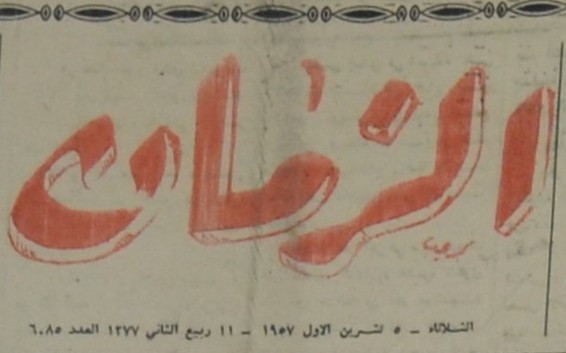 الزمان
الثلاثاء - ٥ تشرين الاول ١٩٥٧ - ١١ ربيع الثاني ١٣٧٧ العدد ٦٠٨٥